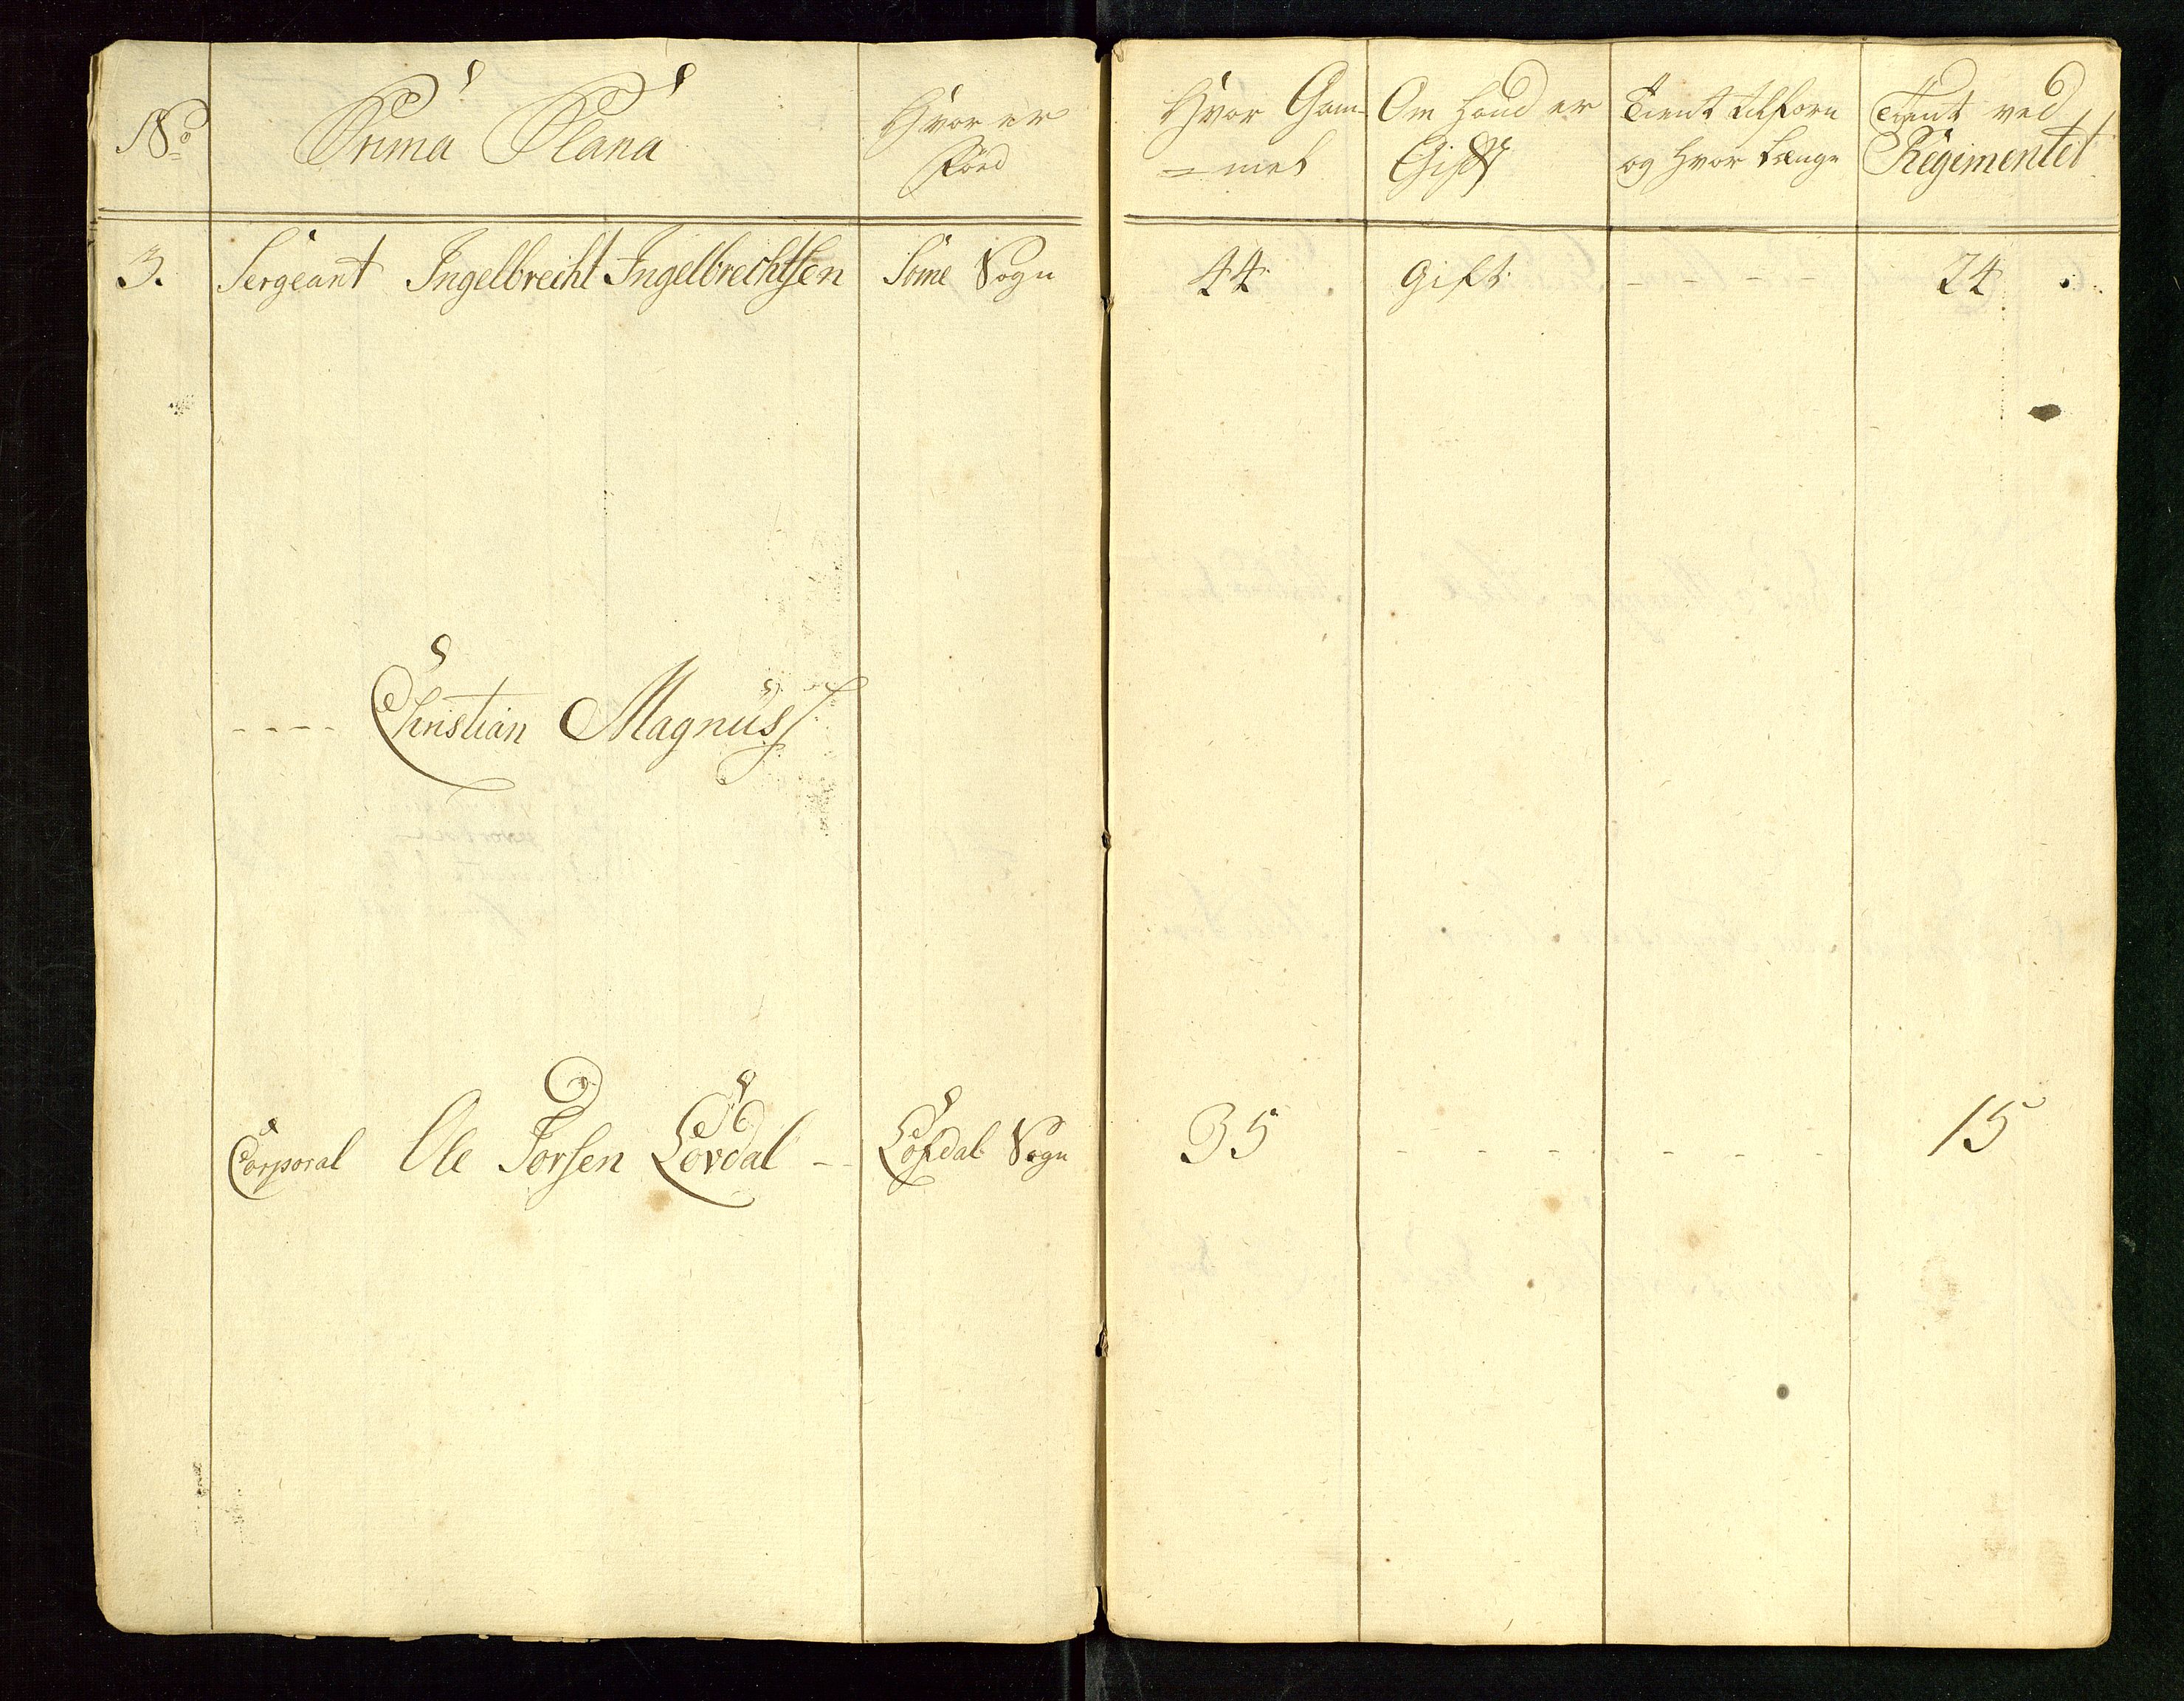 No
Prima Plana
Hvor er
Föed
Hvor Gam-
=mel
Om hand er
Gift
Tient tilforn
og hvor længe
Tient ved
Regimentet
3. Sergeant Ingelbrecht Ingelbrechtsen Söme Sogn 44 Gift - - - - 24
- - - - Christian Magnus
Corporal Ole Torsen Lövdal - - Löfdal Sogn 35 - - - - - - 15